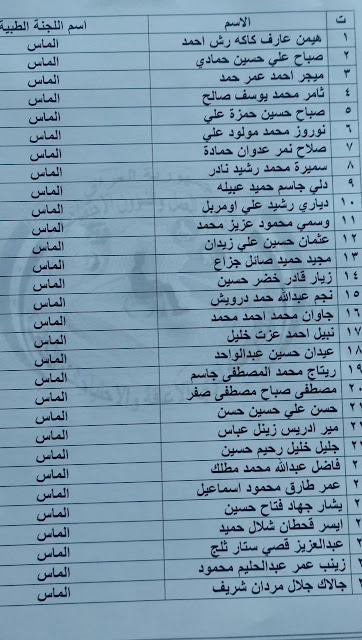 ت الاسم اسم اللجنة الطبية
١ هيمن عارف كاكه رش احمد الماس
٢ صباح علي حسين حمادي الماس
٣ ميجر احمد عمر حمد الماس
٤ ثامر محمد يوسف صالح الماس
٥ صباح حسين حمزة علي الماس
٦ نوروز محمد مولود علي الماس
٧ صلاح نمر عدوان حمادة الماس
٨ سميرة محمد رشيد نادر الماس
٩ دلي جاسم حميد عبيله الماس
١٠ دياري رشيد علي اومربل الماس
١١ وسمي محمود عزيز محمد الماس
١٢ عثمان حسين علي زيدان الماس
١٣ مجيد حميد صائل جزاع الماس
١٤ زيار قادر خضر حسين الماس
١٥ نجم عبدالله حمد درويش الماس
١٦ جاوان محمد احمد محمد الماس
١٧ نبيل احمد عزت خليل الماس
١٨ عيدان حسين عبدالواحد الماس
١٩ ريتاج محمد المصطفى جاسم الماس
٢ مصطفى صباح مصطفى صفر الماس
٢١ حسن علي حسين حسن الماس
٢٢ مير ادريس زينل عباس الماس
٢ جليل خليل رحيم حسين الماس
٢ فاضل عبدالله محمد مطلك الماس
٢ عمر طارق محمود اسماعيل الماس
٢ يشار جهاد فتاح حسين الماس
٢ ايسر قحطان شلال حميد الماس
٢ عبدالعزيز قصي ستار ثلج الماس
٢ زينب عمر عبدالحليم محمود الماس
٣ جالاك جلال مردان شريف الماس